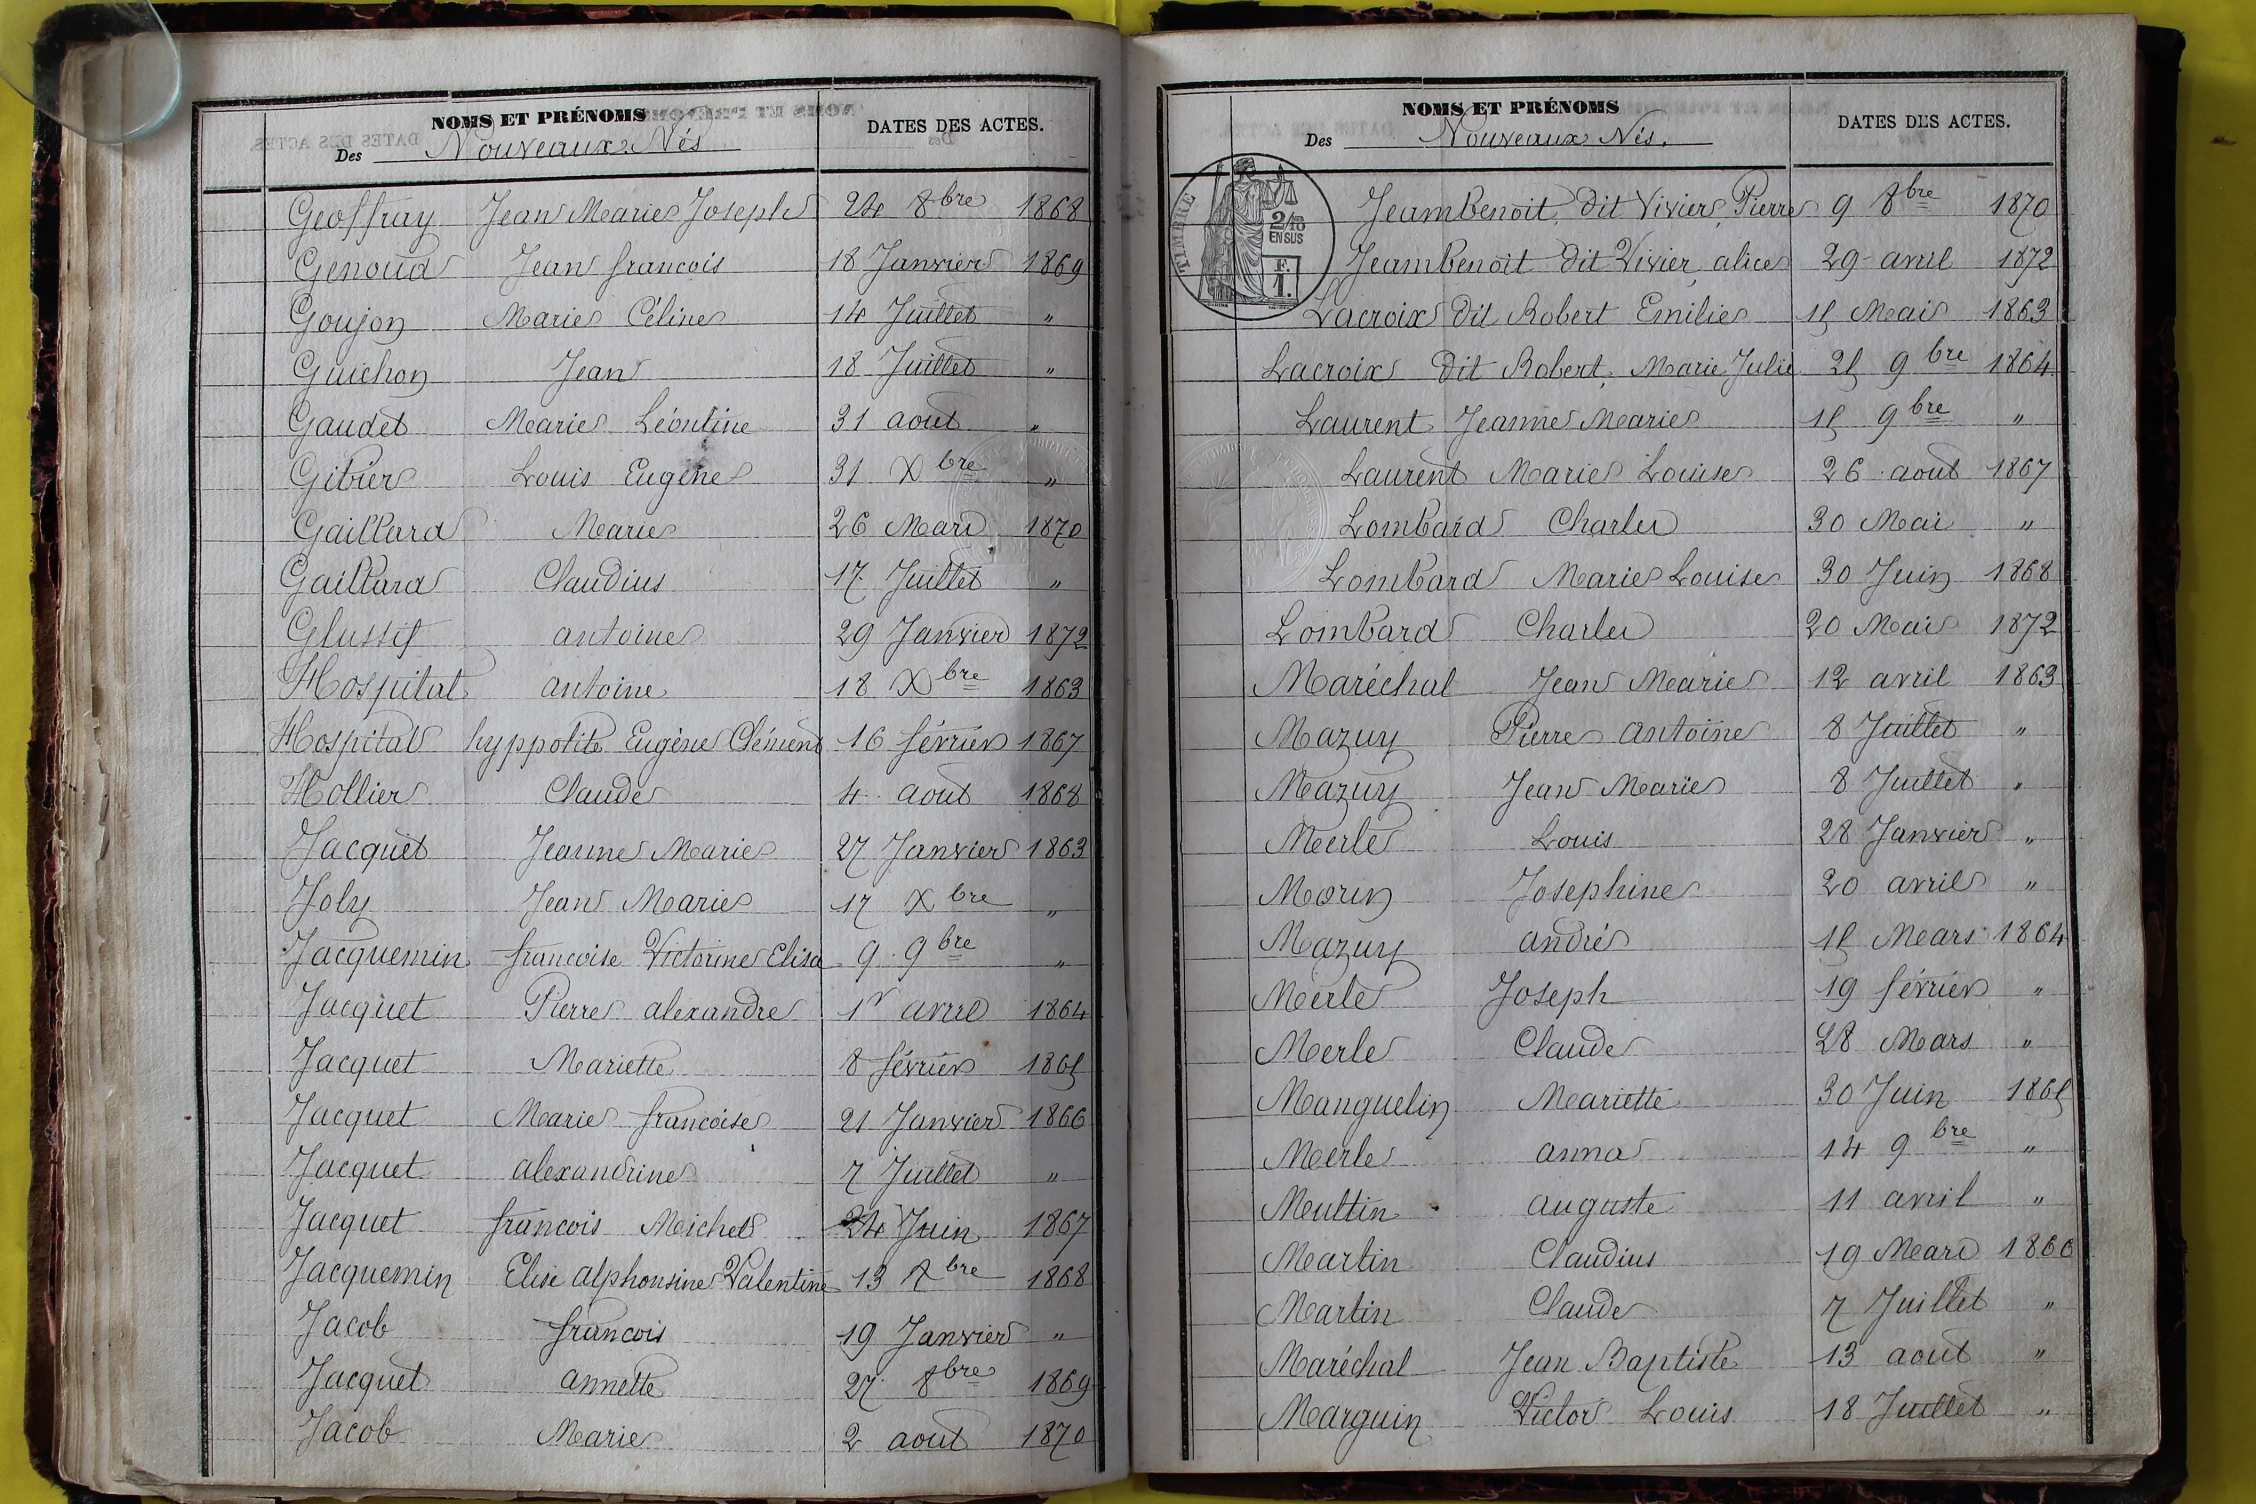 NOMS ET PRÉNOMS
Des Nouveaux Nés
DATES DES ACTES.
Geoffray Jean Marie Joseph 24 8bre 1868
Genoud Jean francois 18 Janvier 1869
Goujon Marie Céline 14 Juillet "
Guichon Jean 18 Juillet "
Gaudet Marie Léontine 31 aout "
Gibier Louis Eugène 31 Xbre "
Gaillard Marie 26 Mars 1870
Gaillard Claudius 17 Juillet "
antoine 29 Janvier 1872
Hospital antoine 18 Xbre 1863
Hospital hyppolite Eugène Clément 16 février 1867
Hollier Claude 4 aout 1868
Jacquet Jeanne Marie 27 Janvier 1863
Joly Jean Marie 17 Xbre "
Jacquemin francoise Victorine Elisa 9 9bre "
Jacquet Pierre alexandre 1r avril 1864
Jacquet Mariette 8 février 1865
Jacquet Marie francoise 21 Janvier 1866
Jacquet alexandrine 7 Juillet "
Jacquet francois Michel 24 Juin 1867
Jacquemin Elise alphonsine Valentine 13 7bre 1868
Jacob francois 19 Janvier "
Jacquet annette 27 8bre 1869
Jacob Marie 2 aout 1870
NOMS ET PRÉNOMS
Des Nouveaux Nés.
DATES DES ACTES.
TIMBRE
2/10
EN SUS
F.
1.
Jeambenoit dit Vivier Pierre 9 8bre 1870
Jeambenoit dit Vivier alice 29 avril 1872
Lacroix dit Robert Emilie 15 Mai 1863
Lacroix dit Robert Marie Julie 25 9bre 1864
Laurent Jeanne Marie 15 9bre "
Laurent Marie Louise 26 aout 1867
Lombard Charles 30 Mai "
Lombard Marie Louise 30 Juin 1868
Lombard Charles 20 Mai 1872
Maréchal Jean Marie 12 avril 1863
Mazuy Pierre antoine 8 Juillet "
Mazuy Jean Marie 8 Juillet "
Merle Louis 28 Janvier "
Morin Josephine 20 avril "
Mazuy andré 15 Mars 1864
Merle Joseph 19 février "
Merle Claude 28 Mars "
Manguelin Mariette 30 Juin 1865
Merle anna 14 9bre "
Multin auguste 11 avril "
Martin Claudius 19 Mars 1866
Martin Claude 7 Juillet "
Maréchal Jean Baptiste 13 aout "
Marguin Victor Louis 18 Juillet "